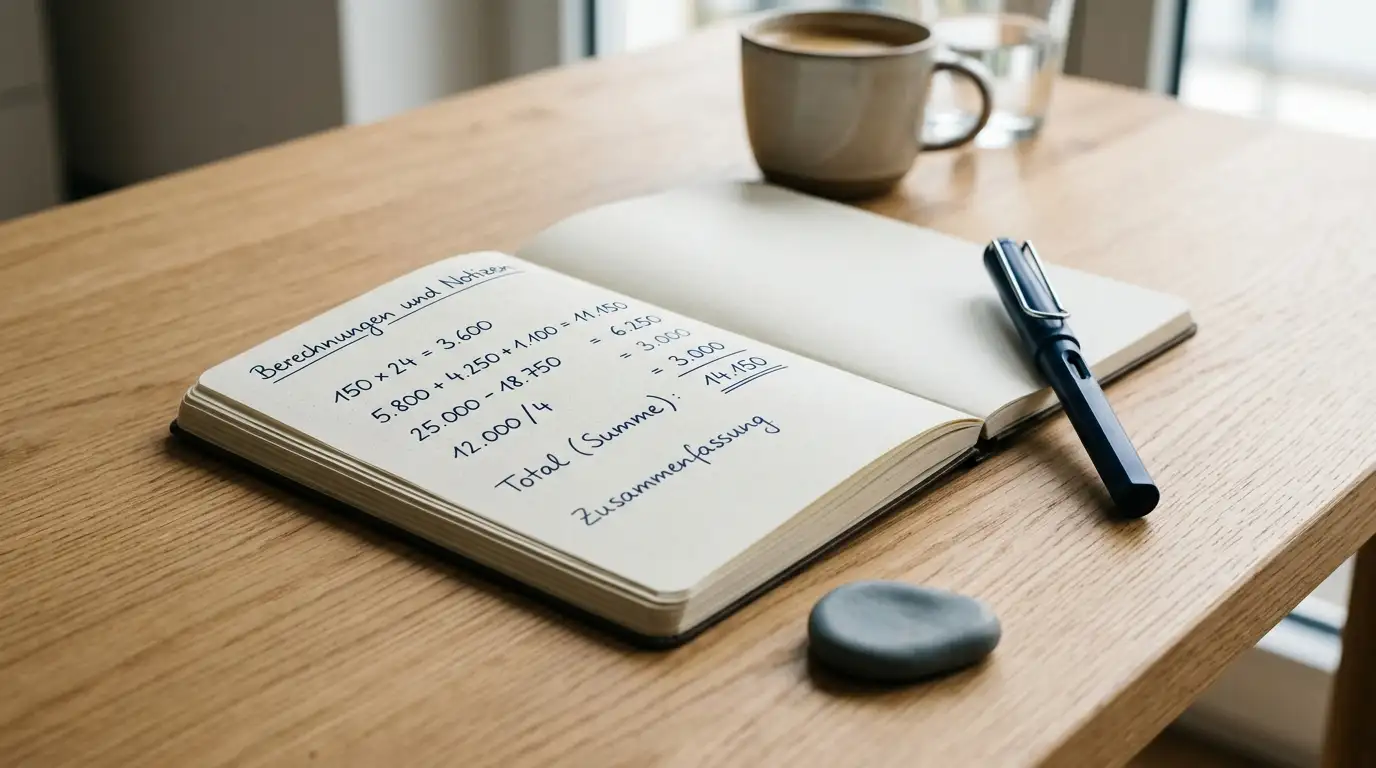 Berechnungen und Notizen
150 × 24 = 3.600
5.800 + 4.250 + 1.100 = 11.150
25.000 − 18.750 = 6.250
12.000/4 = 3.000
= 3.000
Total (Summe): 14.150
Zusammenfassung